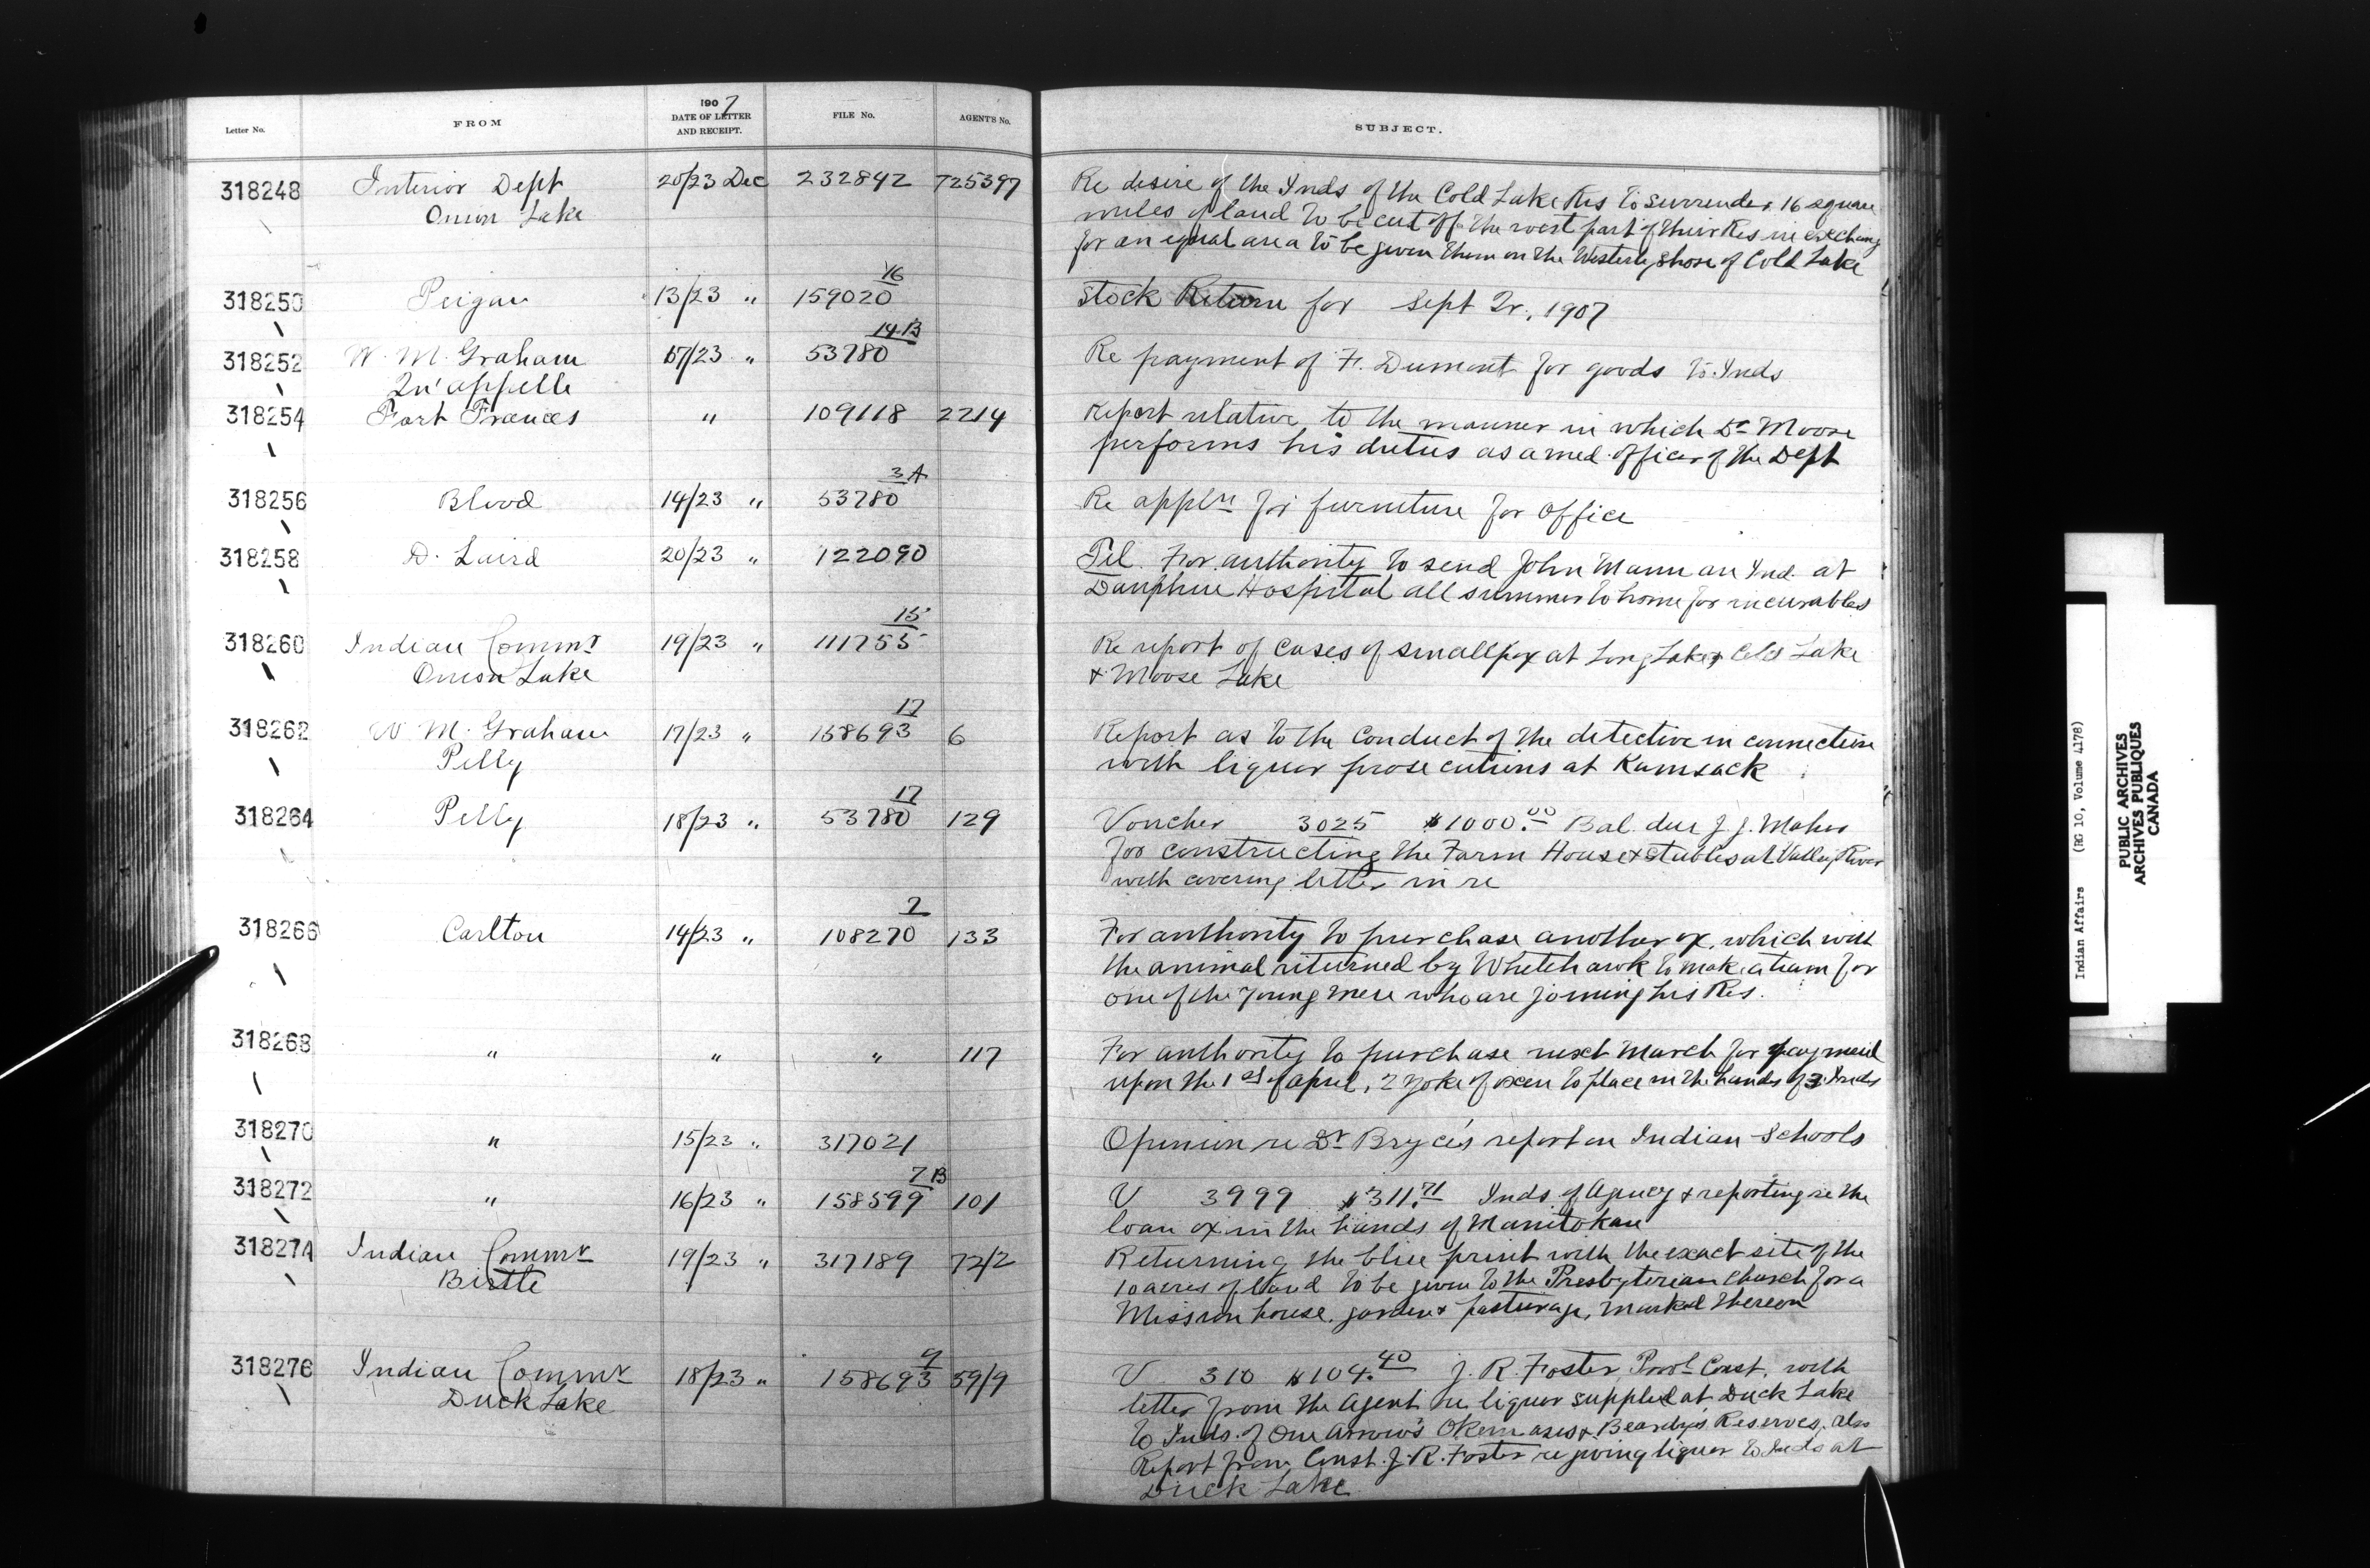 1907
Letter No. FROM DATE OF LETTER AND RECEIPT. FILE No. AGENT'S No. SUBJECT.
318248 Interior Dept 20/23 Dec 232842 725397 Re desire of the Inds of the Cold Lake Res to surrender 16 square
Onion Lake miles of land to be cut off the west part of their Res in exchang
for an equal area to be given them on the Westerly shore of Cold Lake
16
318250 Peigan 13/23 " 159020 Stock Return for Sept Qr, 1907
14 B
318252 W. M. Graham 17/23 " 53780 Re payment of F. Dumont for goods to Inds
Qu'appelle
318254 Fort Frances " 109118 2214 Report relative to the manner in which Dr Moore
performs his duties as a med. officer of the Dept
3 A
318256 Blood 14/23 " 53780 Re appln for furniture for office
318258 D. Laird 20/23 " 122090 Tel. For authority to send John Mann an Ind. at
Dauphin Hospital all summer to home for incurables
15
318260 Indian Commr 19/23 " 111755 Re report of cases of smallpox at Long Lake, Cold Lake
Onion Lake & Moose Lake
17
318262 W M. Graham 17/23 " 158693 6 Report as to the conduct of the detective in connection
Pelly with liquor prosecutions at Kamsack
17
318264 Pelly 18/23 " 53780 129 Voucher 3025 $1000.00 Bal. due J. J. Maher
for constructing the Farm House & Stables at Valley River
with covering letter in re
2
318266 Carlton 14/23 " 108270 133 For authority to purchase another ox, which with
the animal returned by Whitehawk to make a team for
one of the young men who are joining his Res.
318268 " " " 117 For authority to purchase next March for payment
upon the 1st of April, 2 yoke of oxen to place in the hands of 3 Inds
318270 " 15/23 " 317021 Opinion re Dr Bryce's report on Indian Schools
7 B
318272 " 16/23 " 158599 101 V 3999 $311.71 Inds. of Agency & reporting re the
loan ox in the hands of Manitokan
318274 Indian Commr 19/23 " 317189 72/2 Returning the blue print with the exact site of the
Birtle 10 acres of land to be given to the Presbyterian Church for a
Mission house, garden & pasturage, marked thereon
9
318276 Indian Commr 18/23 " 158693 59/9 V 310 $104.40 J. R. Foster, Provl Const. with
Duck Lake letter from the Agent re liquor supplied at Duck Lake
to Inds. of One Arrow's Okemasis & Beardy's Reserves, also
Report from Const. J. R. Foster re giving liquor to Inds at
Duck Lake
Indian Affairs (RG 10, Volume 4178)
PUBLIC ARCHIVES
ARCHIVES PUBLIQUES
CANADA